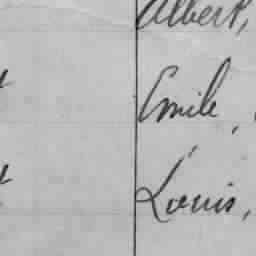 Albert,
Emile,
Louis,